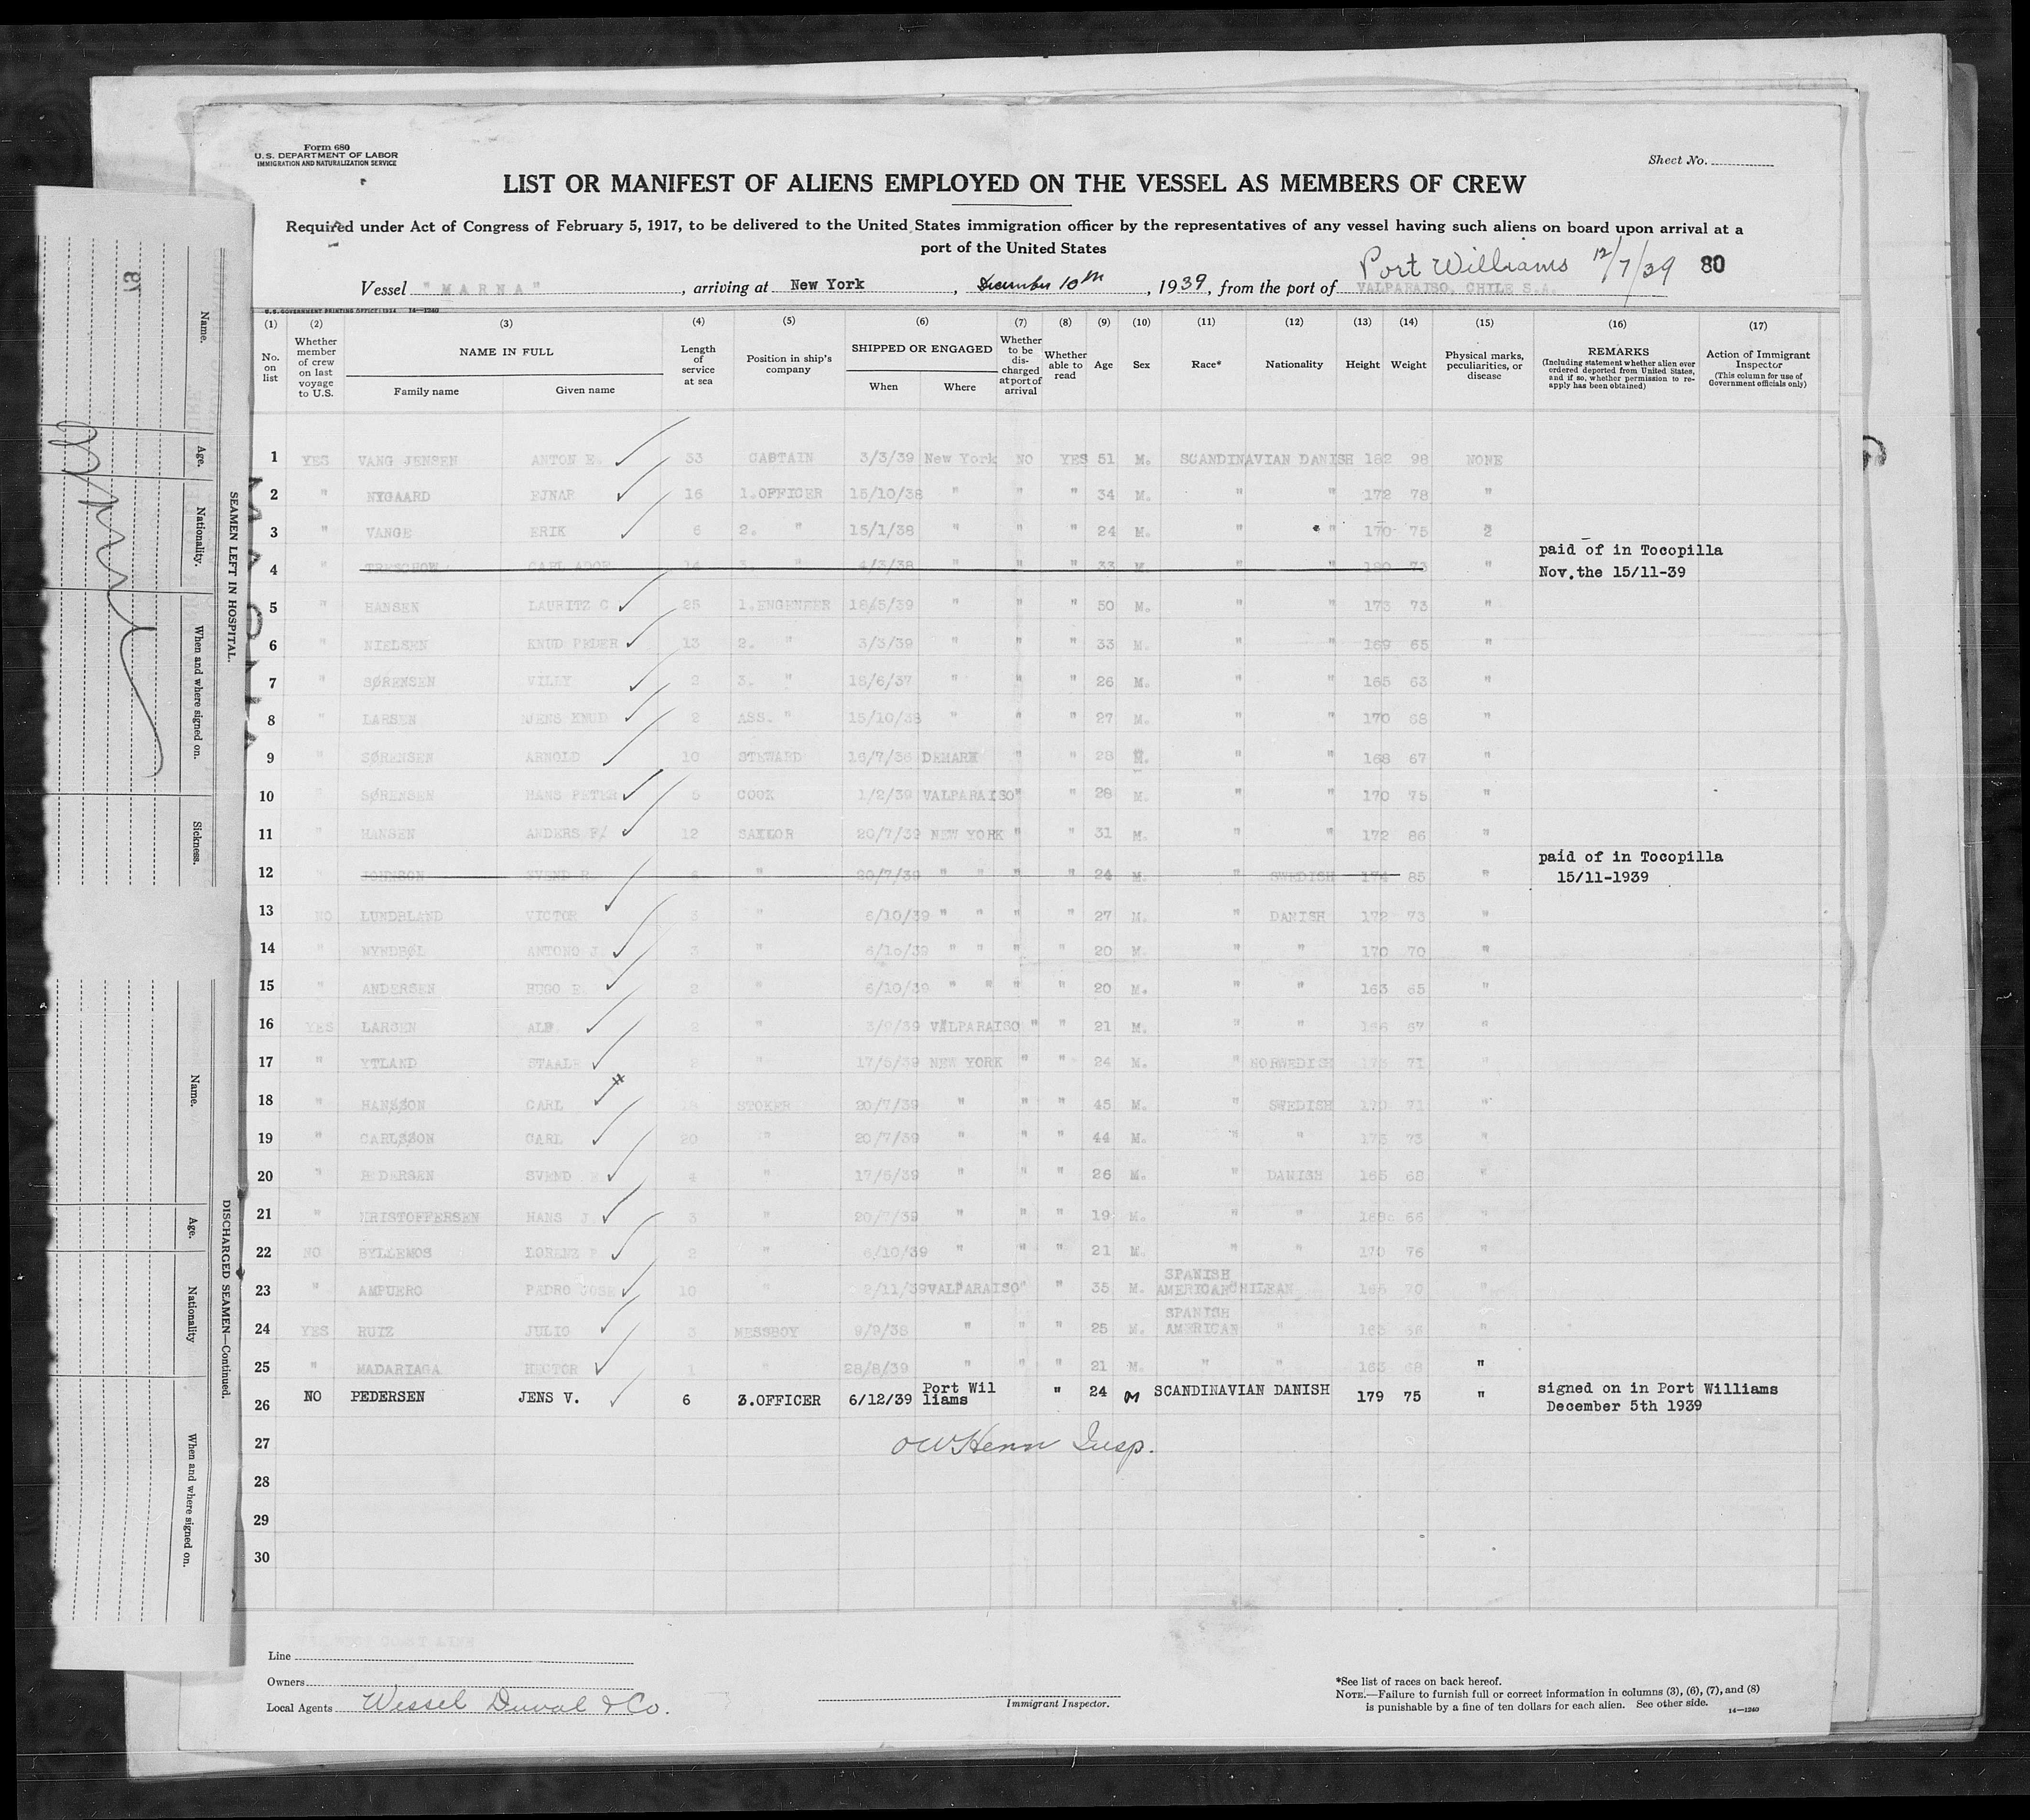 Form 680
U.S. DEPARTMENT OF LABOR
IMMIGRATION AND NATURALIZATION SERVICE
Sheet No.
LIST OR MANIFEST OF ALIENS EMPLOYED ON THE VESSEL AS MEMBERS OF CREW
Required under Act of Congress of February 5, 1917, to be delivered to the United States immigration officer by the representatives of any vessel having such aliens on board upon arrival at a
port of the United States
Port Williams 12/7/39 80
Vessel "MARNA", arriving at New York, December 10th, 1939, from the port of VALPARAISO, CHILE S.A.
U.S. GOVERNMENT PRINTING OFFICE: 1934 14—1240
(1) (2) (3) (4) (5) (6) (7) (8) (9) (10) (11) (12) (13) (14) (15) (16) (17)
No. on list
Whether member of crew on last voyage to U.S.
NAME IN FULL
Family name Given name
Length of service at sea
Position in ship's company
SHIPPED OR ENGAGED
When Where
Whether to be discharged at port of arrival
Whether able to read
Age Sex Race* Nationality Height Weight
Physical marks, peculiarities, or disease
REMARKS
(Including statement whether alien ever ordered deported from United States, and if so, whether permission to reapply has been obtained)
Action of Immigrant Inspector
(This column for use of Government officials only)
1 YES VANG JENSEN ANTON E. 33 CAPTAIN 3/3/39 New York NO YES 51 M. SCANDINAVIAN DANISH 182 98 NONE
2 " NYGAARD EJNAR 16 1.OFFICER 15/10/38 " " " 34 M. " " 172 78 "
3 " VANGE ERIK 6 2. " 15/1/38 " " " 24 M. " " 170 75 2
4 " TRESCHOW CARL ADOF 14 3. " 4/3/38 " " " 33 M. " " 73 " paid of in Tocopilla
Nov.the 15/11-39
5 " HANSEN LAURITZ C 25 1.ENGENEER 18/5/39 " " " 50 M. " " 173 73 "
6 " NIELSEN KNUD PEDER 13 2. " 3/3/39 " " " 33 M. " " 169 65 "
7 " SØRENSEN VILLY 2 3. " 18/6/37 " " " 26 M. " " 165 63 "
8 " LARSEN JENS KNUD 2 ASS. " 15/10/38 " " " 27 M. " " 170 68 "
9 " SØRENSEN ARNOLD 10 STEWARD 16/7/36 DEMARK " " 28 M. " " 168 67 "
10 " SØRENSEN HANS PETER 5 COOK 1/2/39 VALPARAISO " " 28 M. " " 170 75 "
11 " HANSEN ANDERS P. 12 SAILOR 20/7/39 NEW YORK " " 31 M. " " 172 86 "
12 " JOHNSON SVEND R. 6 " 20/7/39 " " " " 24 M. " SWEDISH 174 85 " paid of in Tocopilla
15/11-1939
13 NO LUNDBLAND VICTOR 3 " 6/10/39 " " " " 27 M. " DANISH 172 73 "
14 " NYNDBØL ANTONO J. 3 " 6/10/39 " " " " 20 M. " " 170 70 "
15 " ANDERSEN HUGO E. 2 " 6/10/39 " " " " 20 M. " " 163 65 "
16 YES LARSEN ALF. 2 " 3/9/39 VALPARAISO " " 21 M. " " 166 67 "
17 " YTLAND STAALE 2 " 17/5/39 NEW YORK " " 24 M. " NORWEDISH 175 71 "
18 " HANSSON CARL 18 STOKER 20/7/39 " " " 45 M. " SWEDISH 170 71 "
19 " CARLSSON CARL 20 " 20/7/39 " " " 44 M. " " 173 73 "
20 " PEDERSEN SVEND 4 " 17/5/39 " " " 26 M. " DANISH 165 68 "
21 " KRISTOFFERSEN HANS J. 3 " 20/7/39 " " " 19 M. " " 168 66 "
22 NO BYLLEMOS LORENZ P. 2 " 6/10/39 " " " 21 M. " " 170 76 "
23 " AMPUERO PEDRO JOSE 10 " 2/11/39 VALPARAISO " " 35 M. SPANISH AMERICAN CHILEAN 165 70 "
24 YES RUIZ JULIO 3 MESSBOY 9/9/38 " " " 25 M. SPANISH AMERICAN " 165 66 "
25 " MADARIAGA HECTOR 1 " 28/8/39 " " " 21 M. " " 163 68 "
26 NO PEDERSEN JENS V. 6 3.OFFICER 6/12/39 Port Wil
liams " 24 M SCANDINAVIAN DANISH 179 75 " signed on in Port Williams
December 5th 1939
27 OW Henn Insp.
28
29
30
Line WEST COAST LINE
Owners
Local Agents Wessel Duval & Co.
Immigrant Inspector.
*See list of races on back hereof.
NOTE.—Failure to furnish full or correct information in columns (3), (6), (7), and (8)
is punishable by a fine of ten dollars for each alien. See other side.
14—1240
SEAMEN LEFT IN HOSPITAL.
Name. Age. Nationality. When and where signed on. Sickness.
DISCHARGED SEAMEN—Continued.
Name. Age. Nationality When and where signed on.